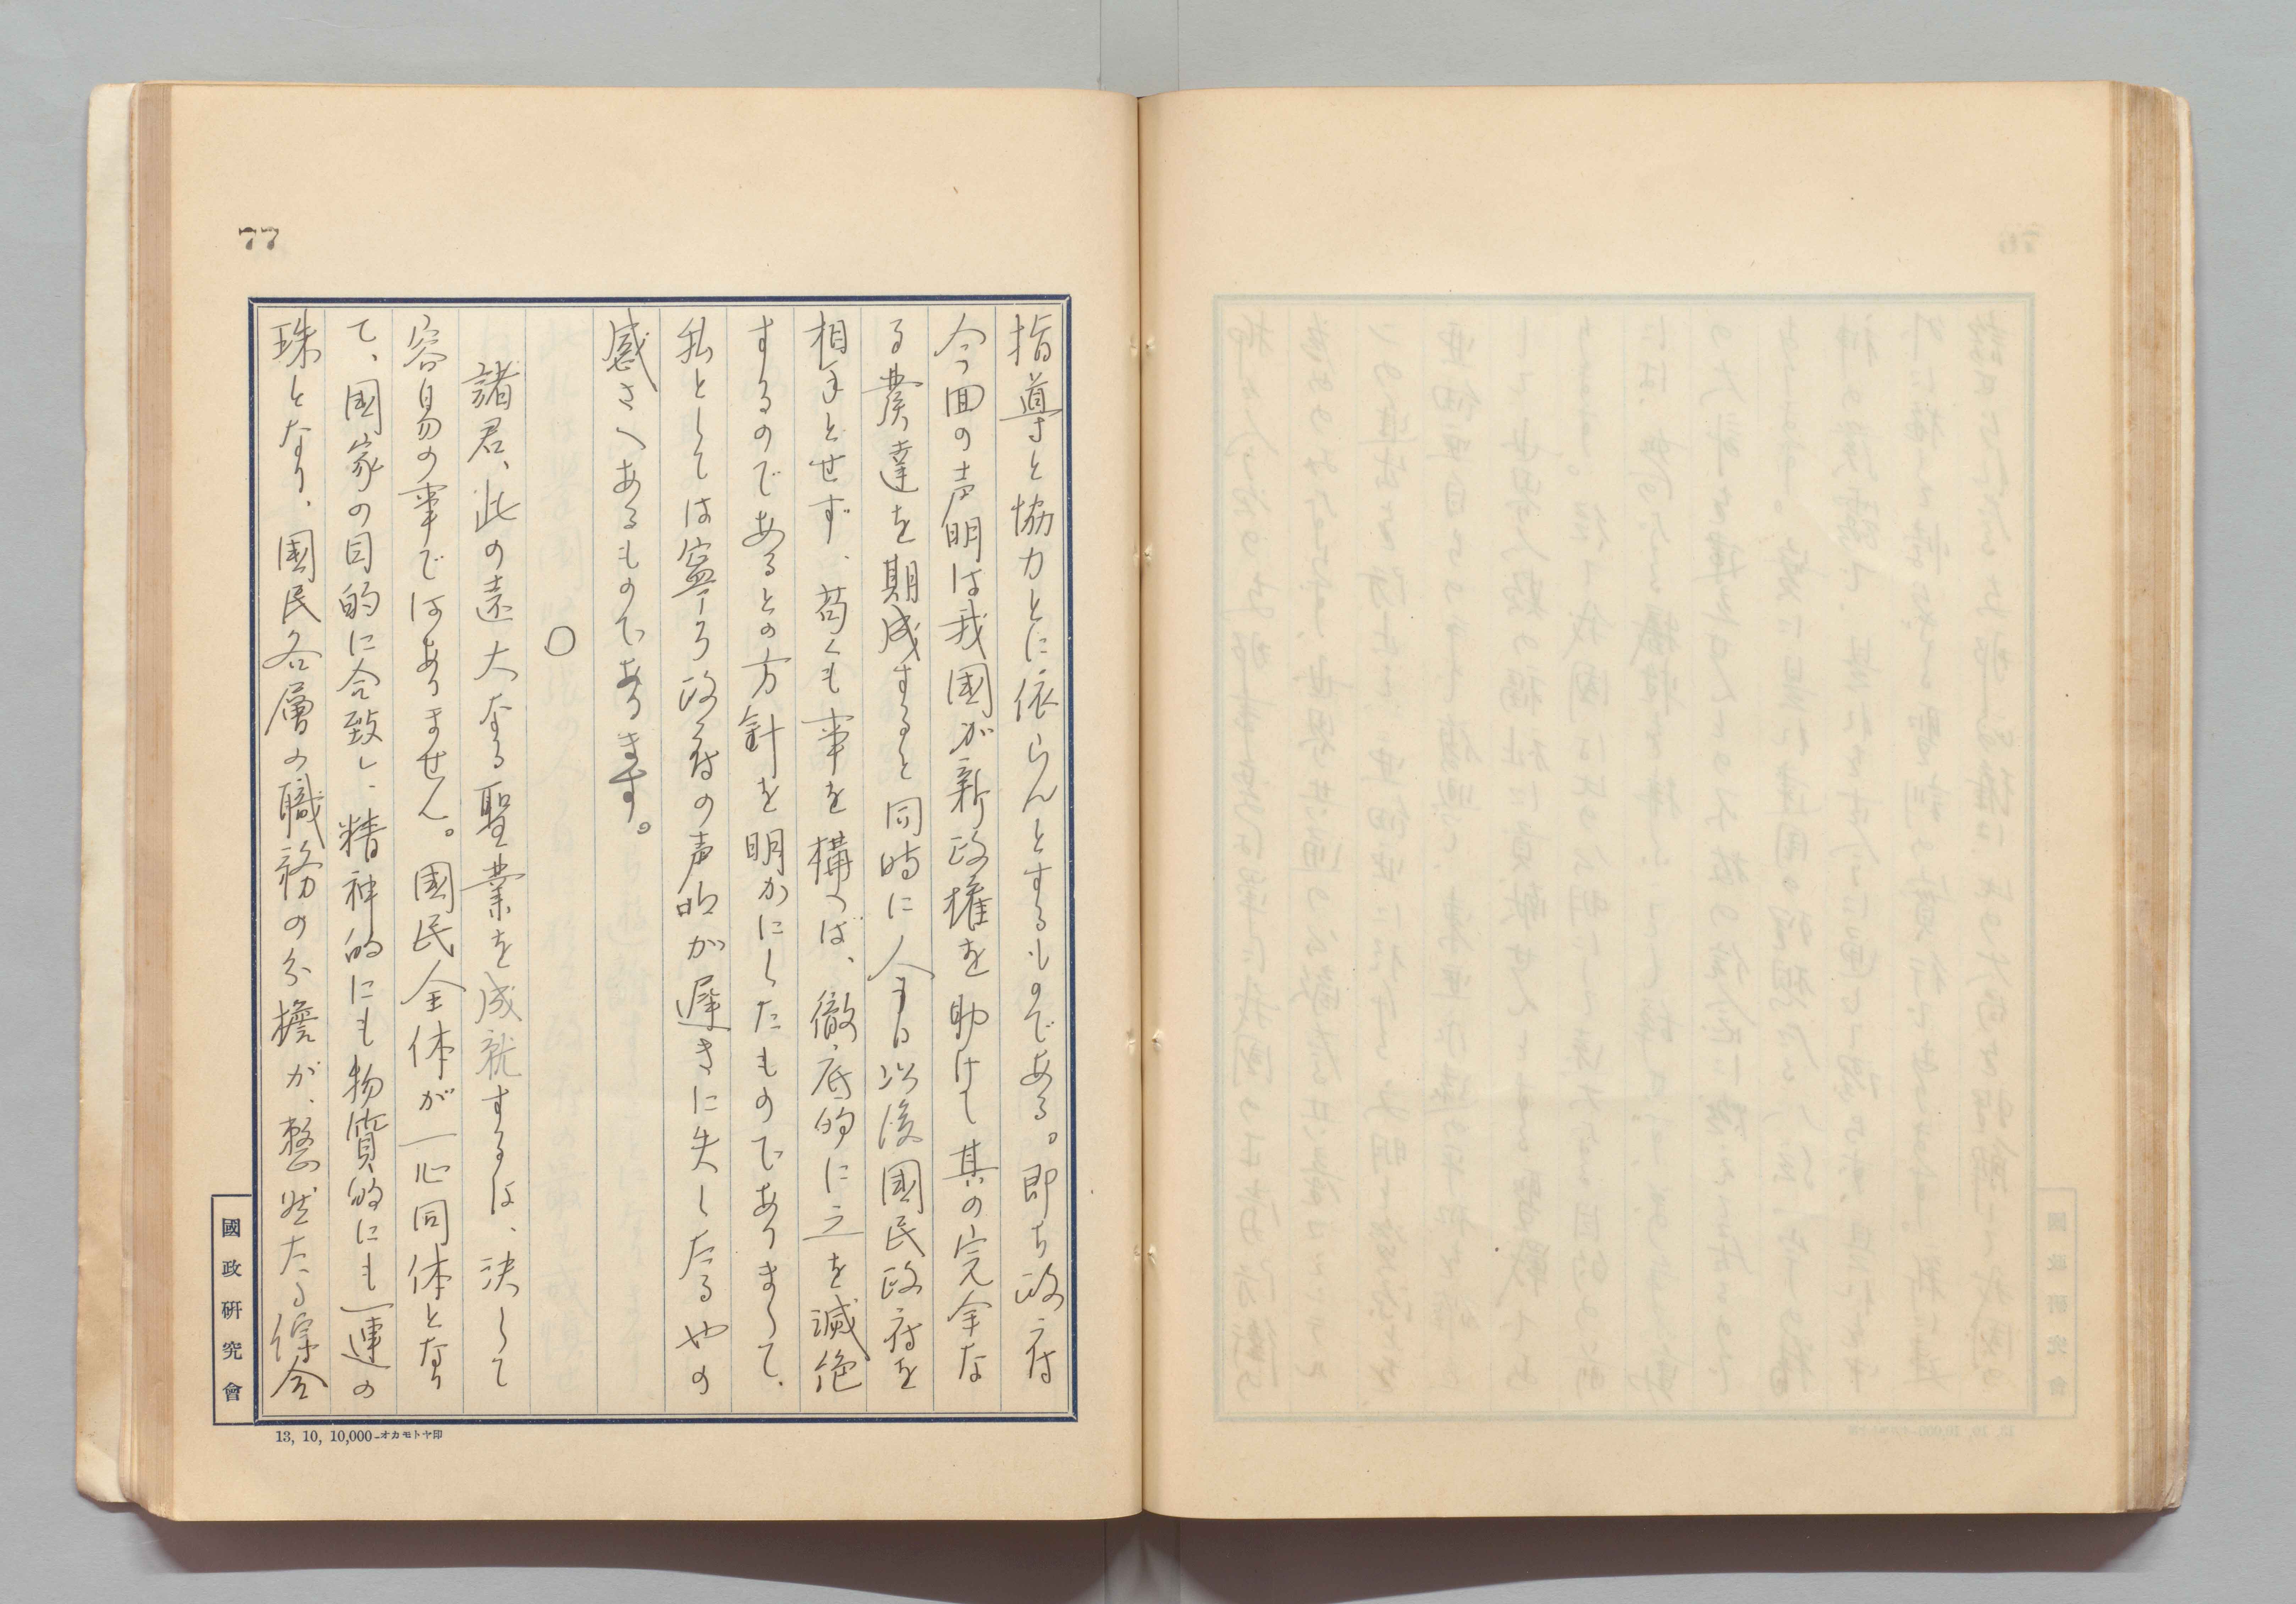 77
指導と協力とに依らんとするものである。即ち政府
今回の声明は我國が新政権を助けて其の完全な
る発達を期成すると同時に今日以後國民政府を
相手とせず、苟くも事を構へば、徹底的に之を滅絶
するのであるとの方針を明かにしたものでありまして、
私としては寧ろ政府の声明が遅きに失したるやの
感さへあるものであります。
〇
諸君、此の遠大なる聖業を成就するは、決して
容易の事ではありません。國民全体が一心同体となり
て、国家の目的に合致し、精神的にも物質的にも一連の
珠となり、國民各層の職務の分擔が、整然たる綜合
國政研究會
13, 10, 10,000-オカモトヤ印